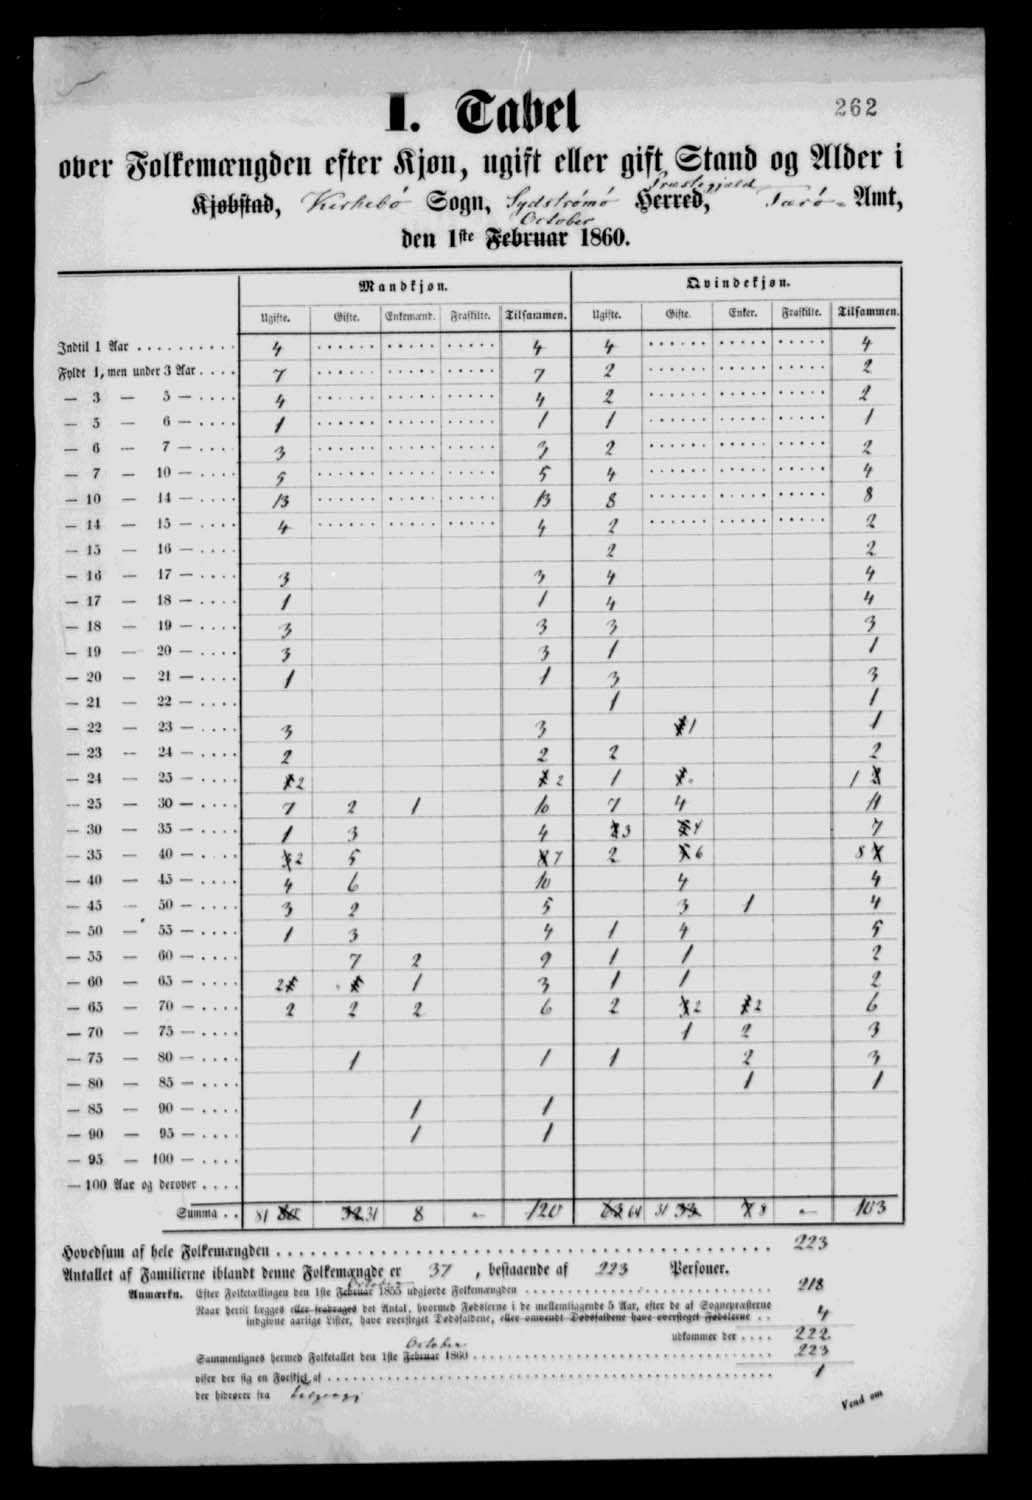 262
I. Tabel
over Folkemængden efter Kjøn, ugift eller gift Stand og Alder i
Kjøbstad, Kirkebö Sogn, Sydströmö Herred, Præstegjæld Færö- Amt,
den 1ste Februar October 1860.
Mandkjøn. Qvindekjøn.
Ugifte. Gifte. Enkemænd. Fraskilte. Tilsammen. Ugifte. Gifte. Enker. Fraskilte. Tilsammen.
Indtil 1 Aar 4 4 4 4
Fyldt 1, men under 3 Aar 7 7 2 2
— 3 — 5 — 4 4 2 2
— 5 — 6 — 1 1 1 1
— 6 — 7 — 3 3 2 2
— 7 — 10 — 5 5 4 4
— 10 — 14 — 13 13 8 8
— 14 — 15 — 4 4 2 2
— 15 — 16 — 2 2
— 16 — 17 — 3 3 4 4
— 17 — 18 — 1 1 4 4
— 18 — 19 — 3 3 3 3
— 19 — 20 — 3 3 1 1
— 20 — 21 — 1 1 3 3
— 21 — 22 — 1 1
— 22 — 23 — 3 3 1 1
— 23 — 24 — 2 2 2 2
— 24 — 25 — 2 2 1 1
— 25 — 30 — 7 2 1 10 7 4 11
— 30 — 35 — 1 3 4 3 4 7
— 35 — 40 — 2 5 7 2 6 8
— 40 — 45 — 4 6 10 4 4
— 45 — 50 — 3 2 5 3 1 4
— 50 — 55 — 1 3 4 1 4 5
— 55 — 60 — 7 2 9 1 1 2
— 60 — 65 — 2 1 3 1 1 2
— 65 — 70 — 2 2 2 6 2 2 2 6
— 70 — 75 — 1 2 3
— 75 — 80 — 1 1 1 2 3
— 80 — 85 — 1 1
— 85 — 90 — 1 1
— 90 — 95 — 1 1
— 95 — 100 —
— 100 Aar og derover
Summa 81 80 32 31 8 - 120 63 64 31 33 8 - 103
Hovedsum af hele Folkemængden 223
Antallet af Familierne iblandt denne Folkemængde er 37, bestaaende af 223 Personer.
Anmærkn. Efter Folketællingen den 1ste Februar October 1855 udgjorde Folkemængden 218
Naar hertil lægges eller fradrages det Antal, hvormed Fødslerne i de mellemliggende 5 Aar, efter de af Sognepræsterne
indgivne aarlige Lister, have oversteget Dødsfaldene, eller omvendt Dødsfaldene have oversteget Fødslerne 4
udkommer der 222
Sammenlignes hermed Folketallet den 1ste Februar October 1860 223
viser der sig en Forskjel af 1
der hidrører fra
Vend om